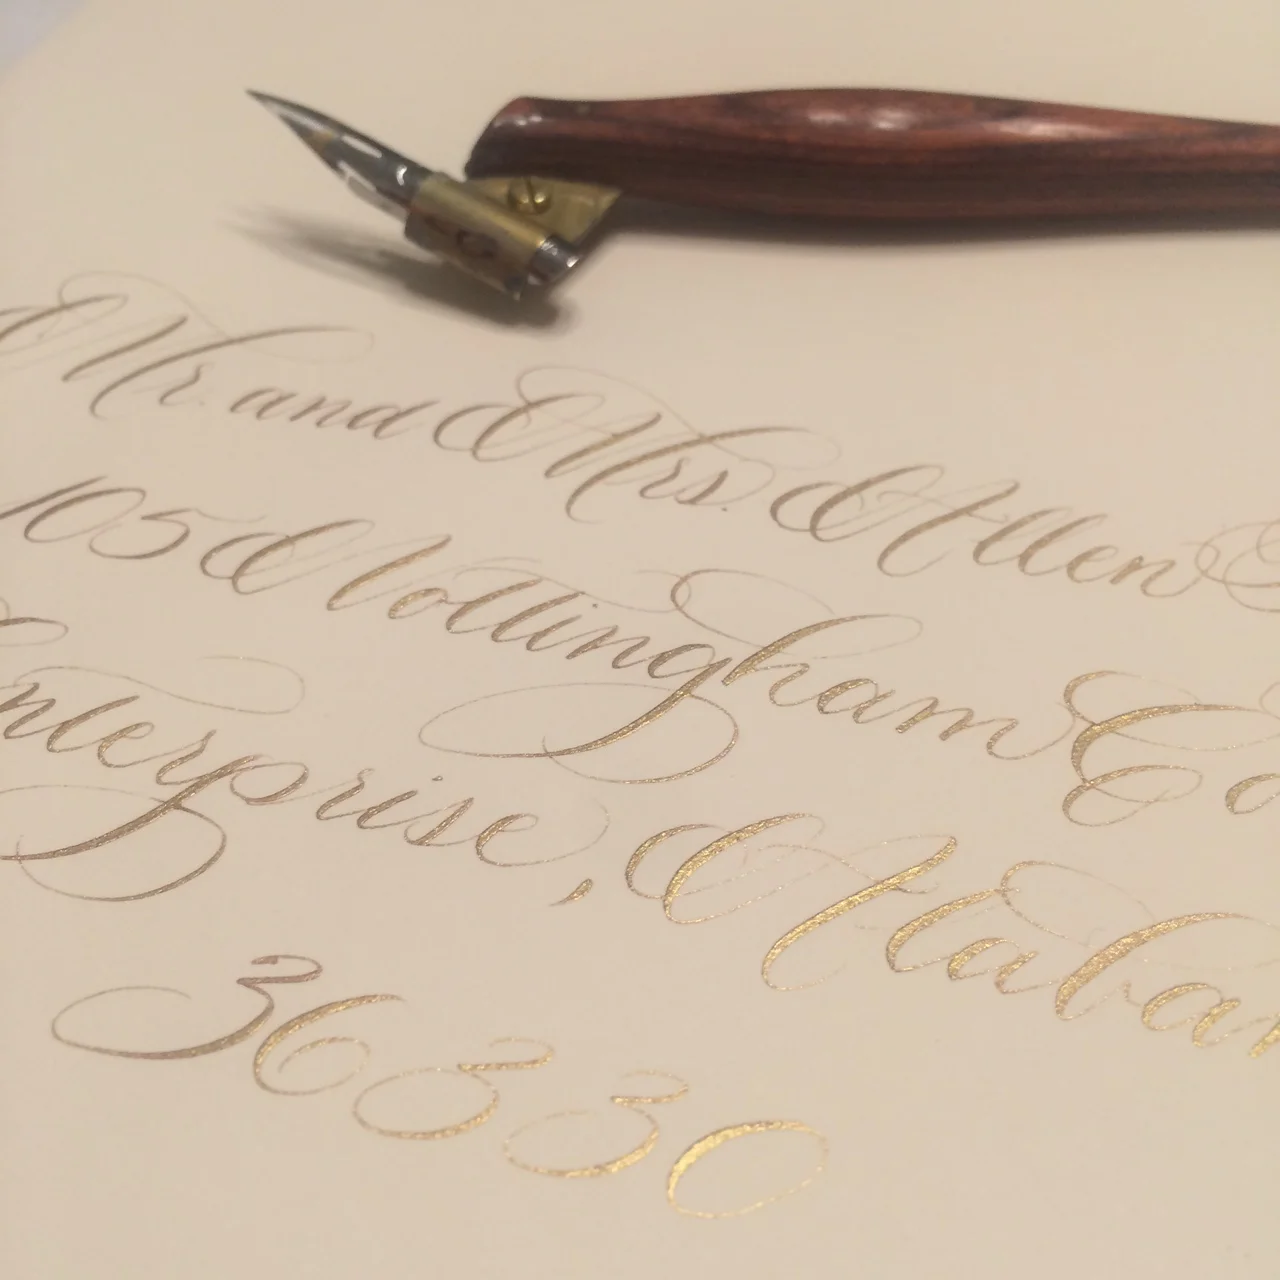 Mr. and Mrs. Allen
105 Nottingham Co
Enterprise, Alabam
36330